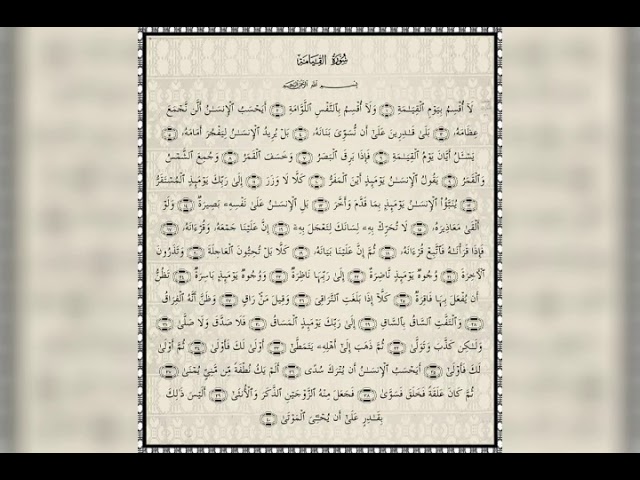 سُورَةُ القِيَامَةِ
بِسْمِ اللَّهِ الرَّحْمَٰنِ الرَّحِيمِ
لَآ أُقْسِمُ بِيَوْمِ ٱلْقِيَٰمَةِ ١ وَلَآ أُقْسِمُ بِٱلنَّفْسِ ٱللَّوَّامَةِ ٢ أَيَحْسَبُ ٱلْإِنسَٰنُ أَلَّن نَّجْمَعَ
عِظَامَهُۥ ٣ بَلَىٰ قَٰدِرِينَ عَلَىٰٓ أَن نُّسَوِّىَ بَنَانَهُۥ ٤ بَلْ يُرِيدُ ٱلْإِنسَٰنُ لِيَفْجُرَ أَمَامَهُۥ ٥
يَسْـَٔلُ أَيَّانَ يَوْمُ ٱلْقِيَٰمَةِ ٦ فَإِذَا بَرِقَ ٱلْبَصَرُ ٧ وَخَسَفَ ٱلْقَمَرُ ٨ وَجُمِعَ ٱلشَّمْسُ
وَٱلْقَمَرُ ٩ يَقُولُ ٱلْإِنسَٰنُ يَوْمَئِذٍ أَيْنَ ٱلْمَفَرُّ ١٠ كَلَّا لَا وَزَرَ ١١ إِلَىٰ رَبِّكَ يَوْمَئِذٍ ٱلْمُسْتَقَرُّ
١٢ يُنَبَّؤُا۟ ٱلْإِنسَٰنُ يَوْمَئِذٍۭ بِمَا قَدَّمَ وَأَخَّرَ ١٣ بَلِ ٱلْإِنسَٰنُ عَلَىٰ نَفْسِهِۦ بَصِيرَةٌ ١٤ وَلَوْ
أَلْقَىٰ مَعَاذِيرَهُۥ ١٥ لَا تُحَرِّكْ بِهِۦ لِسَانَكَ لِتَعْجَلَ بِهِۦٓ ١٦ إِنَّ عَلَيْنَا جَمْعَهُۥ وَقُرْءَانَهُۥ ١٧
فَإِذَا قَرَأْنَٰهُ فَٱتَّبِعْ قُرْءَانَهُۥ ١٨ ثُمَّ إِنَّ عَلَيْنَا بَيَانَهُۥ ١٩ كَلَّا بَلْ تُحِبُّونَ ٱلْعَاجِلَةَ ٢٠ وَتَذَرُونَ
ٱلْءَاخِرَةَ ٢١ وُجُوهٌ يَوْمَئِذٍ نَّاضِرَةٌ ٢٢ إِلَىٰ رَبِّهَا نَاظِرَةٌ ٢٣ وَوُجُوهٌ يَوْمَئِذٍۭ بَاسِرَةٌ ٢٤ تَظُنُّ
أَن يُفْعَلَ بِهَا فَاقِرَةٌ ٢٥ كَلَّآ إِذَا بَلَغَتِ ٱلتَّرَاقِىَ ٢٦ وَقِيلَ مَنْ رَاقٍ ٢٧ وَظَنَّ أَنَّهُ ٱلْفِرَاقُ
٢٨ وَٱلْتَفَّتِ ٱلسَّاقُ بِٱلسَّاقِ ٢٩ إِلَىٰ رَبِّكَ يَوْمَئِذٍ ٱلْمَسَاقُ ٣٠ فَلَا صَدَّقَ وَلَا صَلَّىٰ ٣١
وَلَٰكِن كَذَّبَ وَتَوَلَّىٰ ٣٢ ثُمَّ ذَهَبَ إِلَىٰٓ أَهْلِهِۦ يَتَمَطَّىٰٓ ٣٣ أَوْلَىٰ لَكَ فَأَوْلَىٰ ٣٤ ثُمَّ أَوْلَىٰ
لَكَ فَأَوْلَىٰٓ ٣٥ أَيَحْسَبُ ٱلْإِنسَٰنُ أَن يُتْرَكَ سُدًى ٣٦ أَلَمْ يَكُ نُطْفَةً مِّن مَّنِىٍّ يُمْنَىٰ ٣٧
ثُمَّ كَانَ عَلَقَةً فَخَلَقَ فَسَوَّىٰ ٣٨ فَجَعَلَ مِنْهُ ٱلزَّوْجَيْنِ ٱلذَّكَرَ وَٱلْأُنثَىٰٓ ٣٩ أَلَيْسَ ذَٰلِكَ
بِقَٰدِرٍ عَلَىٰٓ أَن يُحْۦِىَ ٱلْمَوْتَىٰ ٤٠